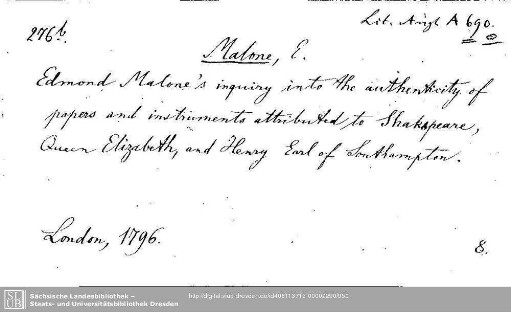 Lit. Angl. A 690.
276b.
Malone, E.
Edmond Malone's inquiry into the authenticity of
papers and instruments attributed to Shakspeare,
Queen Elizabeth, and Henry Earl of Southampton.
London, 1796.
8.
SLUB
Sächsische Landesbibliothek –
Staats- und Universitätsbibliothek Dresden